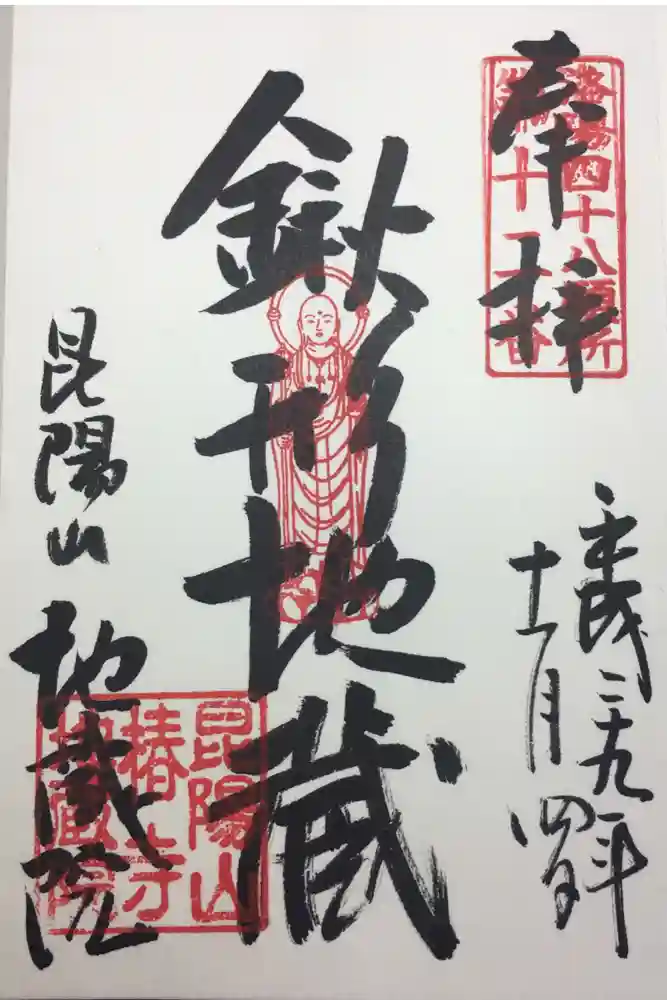 奉拝
洛陽四十八願所
十二番
平成二十九年
十一月四日
鍬形地蔵
昆陽山 地蔵院
昆陽山
椿寺
地蔵院